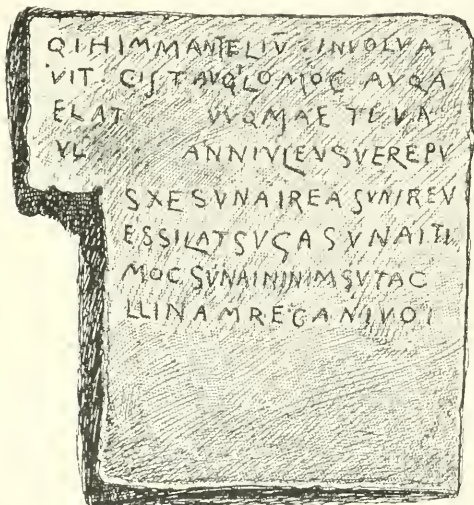 QIHIMMANTELIV̄ · INVOLVA
VIT · CISTAVQLOMOC AVQA
ELAT VVQMAE TLVA
VL ANNIVLEVSVEREPV
SXESVNAIREASVNIREV
ESSILATSVGASVNAITI
MOC SVNAININIMSVTAC
LLINAMREGANIVOI